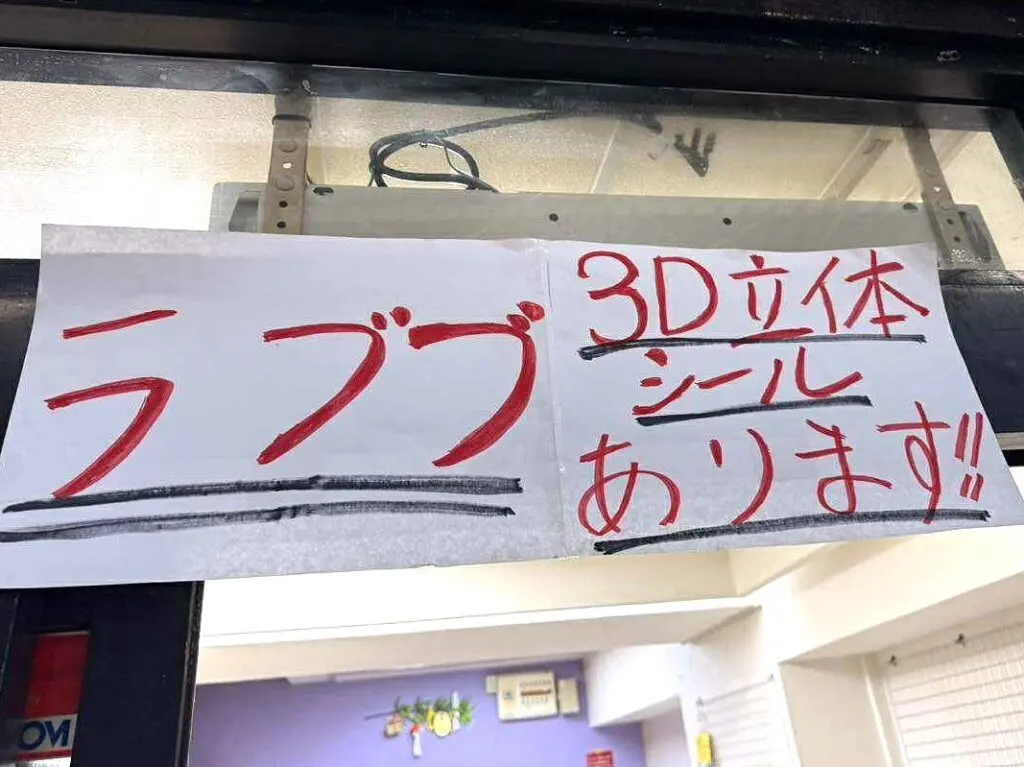 ラブブ
3D立体
シール
あります!!